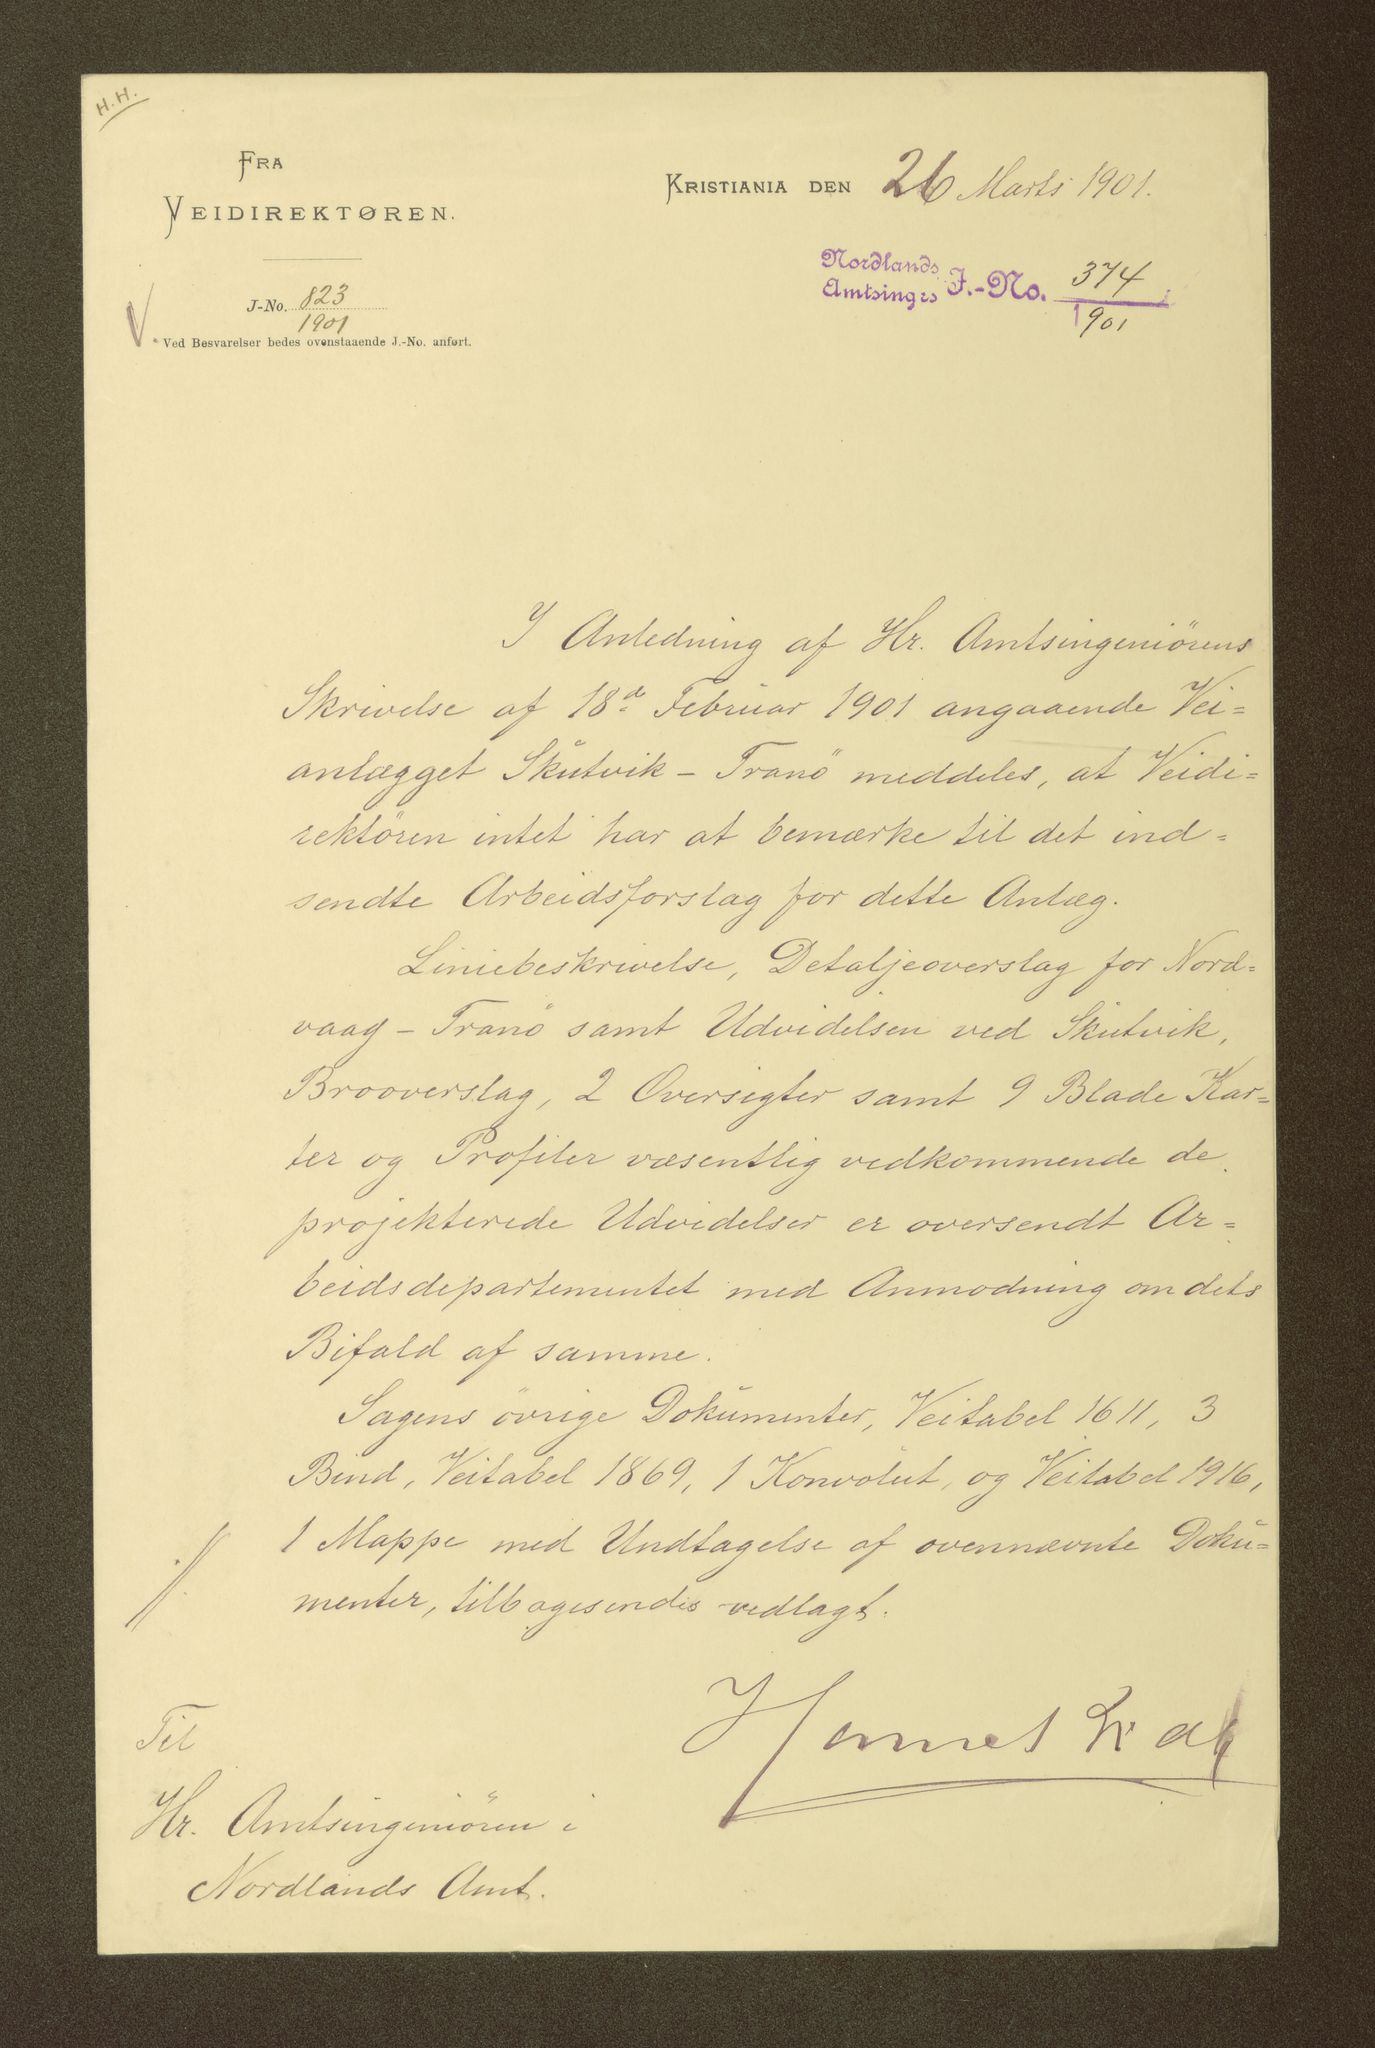 H.H.
FRA
VEIDIREKTØREN.
KRISTIANIA DEN 26 Marts 1901.
J-No. 823
1901
V. Ved Besvarelser bedes ovenstaaende J.-No. anført.
Nordlands
Amtsings J.-No. 374
1901
I Anledning af Hr. Amtsingeniörens
Skrivelse af 18de Februar 1901 angaaende Vei=
anlægget Skutvik - Tranö meddeles, at Veidi=
rektören intet har at bemærke til det ind=
sendte Arbeidsforslag for dette Anlæg.
Liniebeskrivelse, Detaljeoverslag for Nord=
vaag - Tranö samt Udvidelsen ved Skutvik,
Brooverslag, 2 Oversigter samt 9 Blade Kar=
ter og Profiler væsentlig vedkommende de
projekterede Udvidelser er oversendt Ar=
beidsdepartementet med Anmodning om dets
Bifald af samme.
Sagens övrige Dokumenter, Veitabel 1611, 3
Bind, Veitabel 1869, 1 Konvolut, og Veitabel 1916,
1 Mappe med Undtagelse af ovennævnte Doku=
menter, tilbagesendes vedlagt.
Til
Hr. Amtsingeniören i
Nordlands Amt.